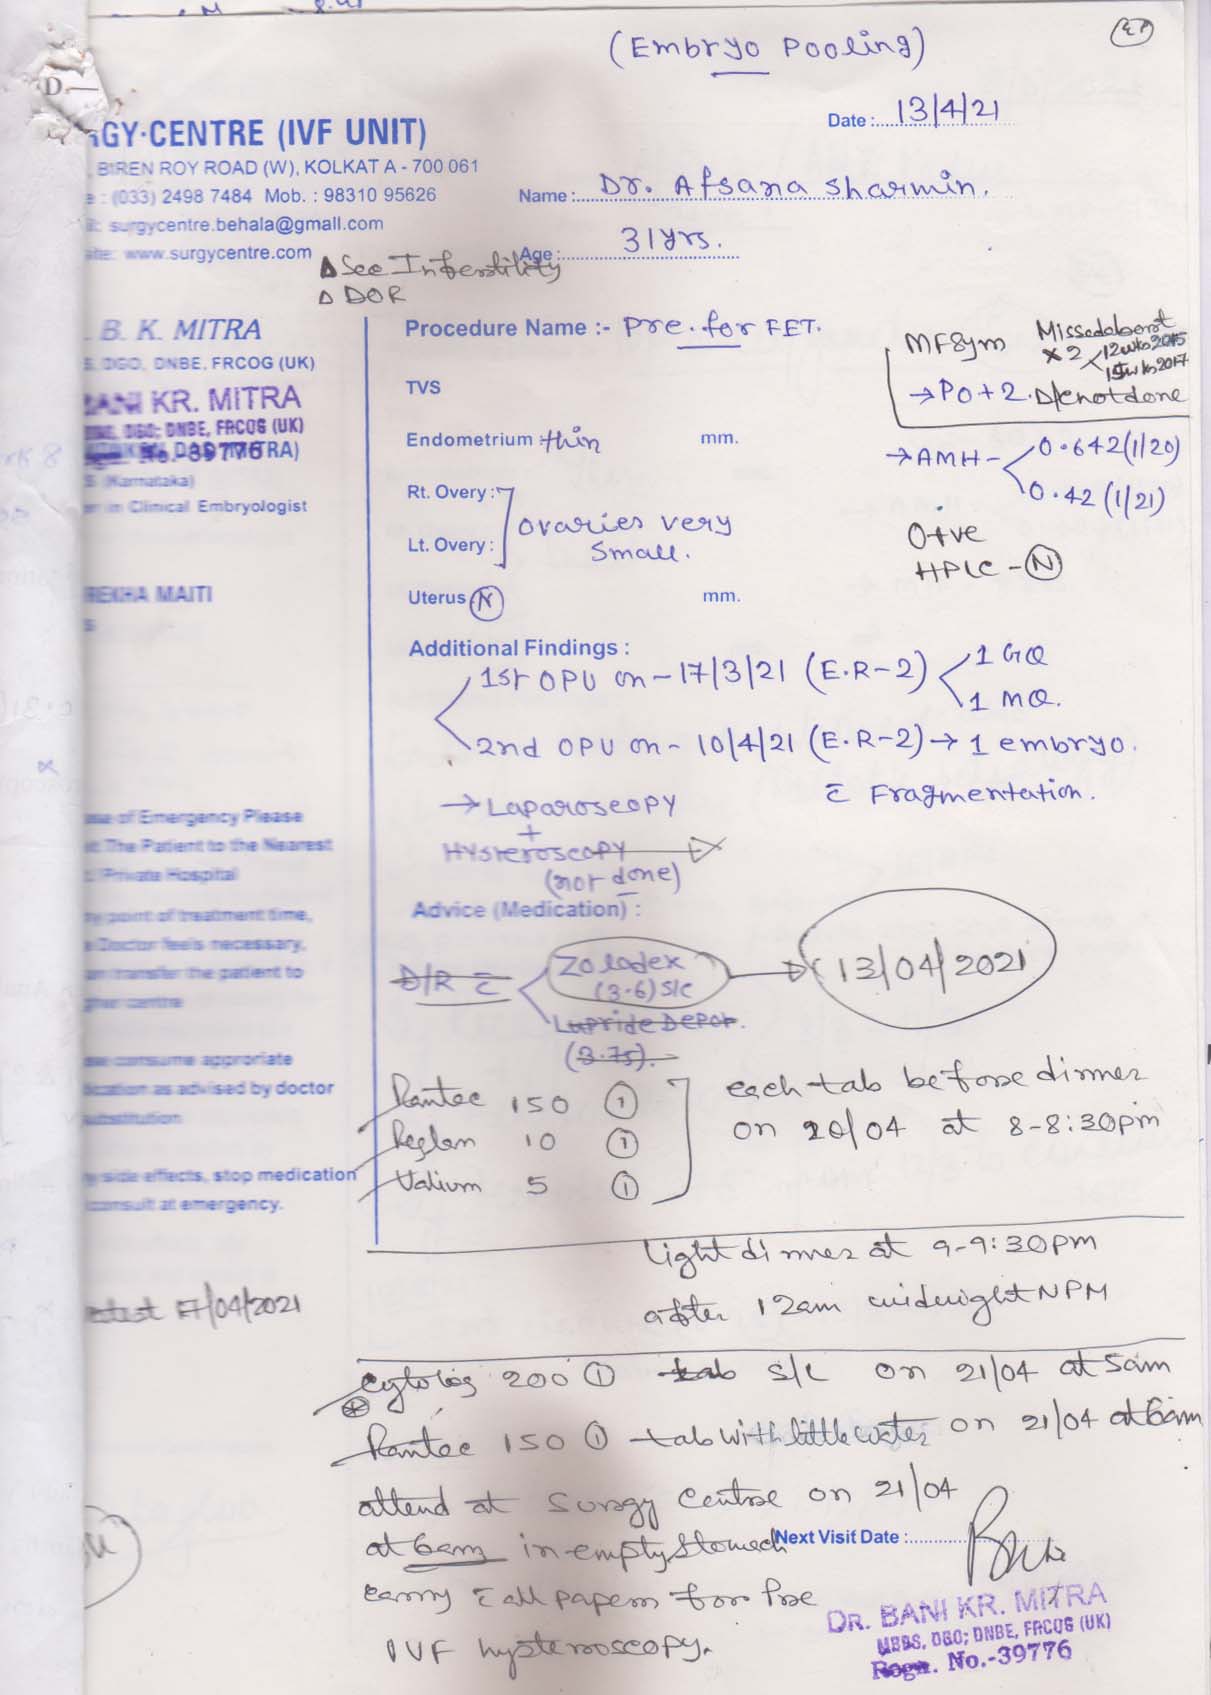 (Embryo Pooling)
D.
RGY·CENTRE (IVF UNIT)
BIREN ROY ROAD (W), KOLKATA - 700 061
: (033) 2498 7484 Mob. : 98310 95626
surgycentre.behala@gmail.com
www.surgycentre.com
Date : 13/4/21
Name : Dr. Afsana Sharmin.
Age : 31yrs.
Δ Sec Infertility
Δ DOR
B. K. MITRA
DGO, DNBE, FRCOG (UK)
BANI KR. MITRA
DGO; DNBE, FRCOG (UK)
No.-39776
MITRA)
(Karnataka)
in Clinical Embryologist
REKHA MAITI
Procedure Name :- Pre. for FET.
MF8ym Missedabort
×2 12wks2015
→P0+2. D/enotdone
TVS
Endometrium thin mm.
→AMH - 0.642(1/20)
0.42 (1/21)
Rt. Overy :
Lt. Overy :
Ovaries very
Small.
O+ve
HPLC - N
Uterus N mm.
Additional Findings :
1st OPU on - 17/3/21 (E.R-2) 1 GQ
1 MQ.
2nd OPU on - 10/4/21 (E.R-2) → 1 embryo.
c̄ Fragmentation.
→ Laparoscopy
+
Hysteroscopy
(not done)
of Emergency Please
The Patient to the Nearest
Private Hospital
point of treatment time,
Doctor feels necessary,
transfer the patient to
centre
consume approriate
as advised by doctor
substitution
side effects, stop medication
consult at emergency.
Advice (Medication) :
D/R c̄ Zoladex
(3.6) S/C
13/04/2021
Lupride Depot.
(3.75).
Rantac 150 1
Reglan 10 1
Valium 5 1
each tab before dinner
on 20/04 at 8-8:30pm
light dinner at 9-9:30pm
after 12am midnight NPM
17/04/2021
Cytolog 200 1 tab S/L on 21/04 at 5am
Rantac 150 1 tab with little water on 21/04 at 6am
attend at Surgy Centre on 21/04
at 6am in empty stomach
Next Visit Date :
carry c̄ all papers for Pre
IVF hysteroscopy.
DR. BANI KR. MITRA
MBBS, DGO; DNBE, FRCOG (UK)
Regn. No.-39776